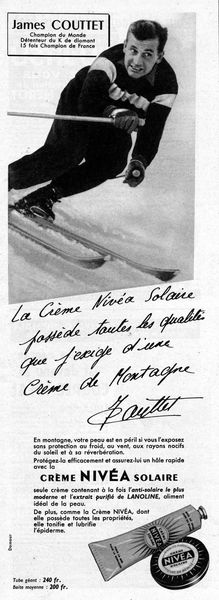 James COUTTET
Champion du Monde
Détenteur du K de diamant
15 fois Champion de France
La Crème Nivéa Solaire
possède toutes les qualités
que j'exige d'une
Crème de Montagne
JCouttet
En montagne, votre peau est en péril si vous l'exposez
sans protection au froid, au vent, aux rayons nocifs
du soleil et à sa réverbération.
Protégez-la efficacement et assurez-lui un hâle rapide
avec la
CRÈME NIVÉA SOLAIRE
seule crème contenant à la fois l'anti-solaire le plus
moderne et l'extrait purifié de LANOLINE, aliment
idéal de la peau.
De plus, comme la Crème NIVÉA, dont
elle possède toutes les propriétés,
elle tonifie et lubrifie
l'épiderme.
Tube géant : 240 fr.
Boîte moyenne : 200 fr.
NIVÉA
CRÈME
NIVÉA
SOLAIRE